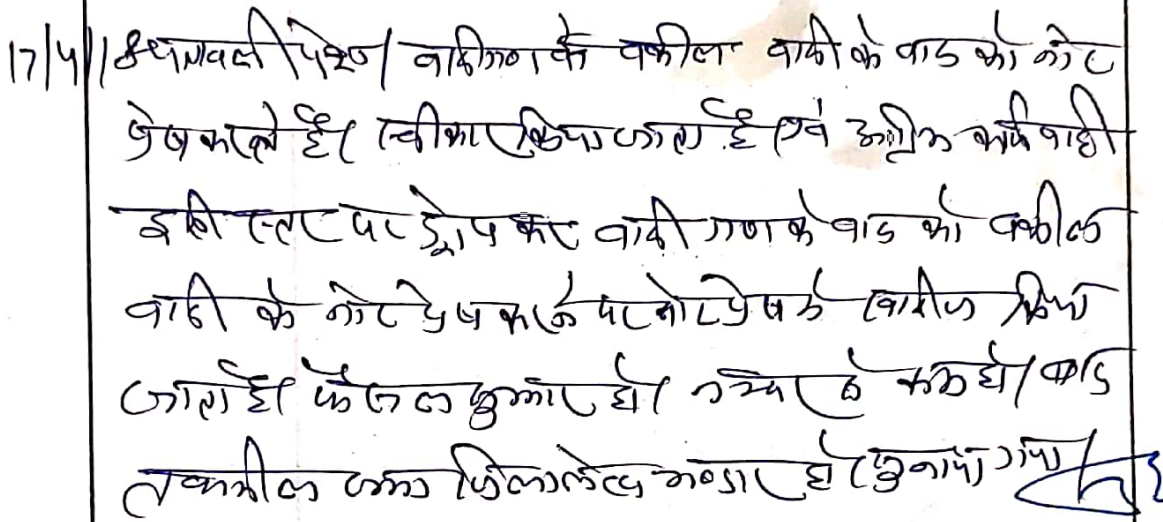 17/4 पत्रावली पेश। वादीगण के वकील वादी के वाद को नोट
प्रेस करते है। स्वीकार किया जाता है एवं अग्रिम कार्यवाही
इसी स्तर पर ड्रोप कर वादी गण के वाद को वकील
वादी के नोट प्रेष करने पर नोट प्रेष में खारीज किया
जाता है। फैसल शुमार हो। नम्बर से कम हो। बाद
तकमील जमा अभिलेख भण्डार हो। सुनाया गया।